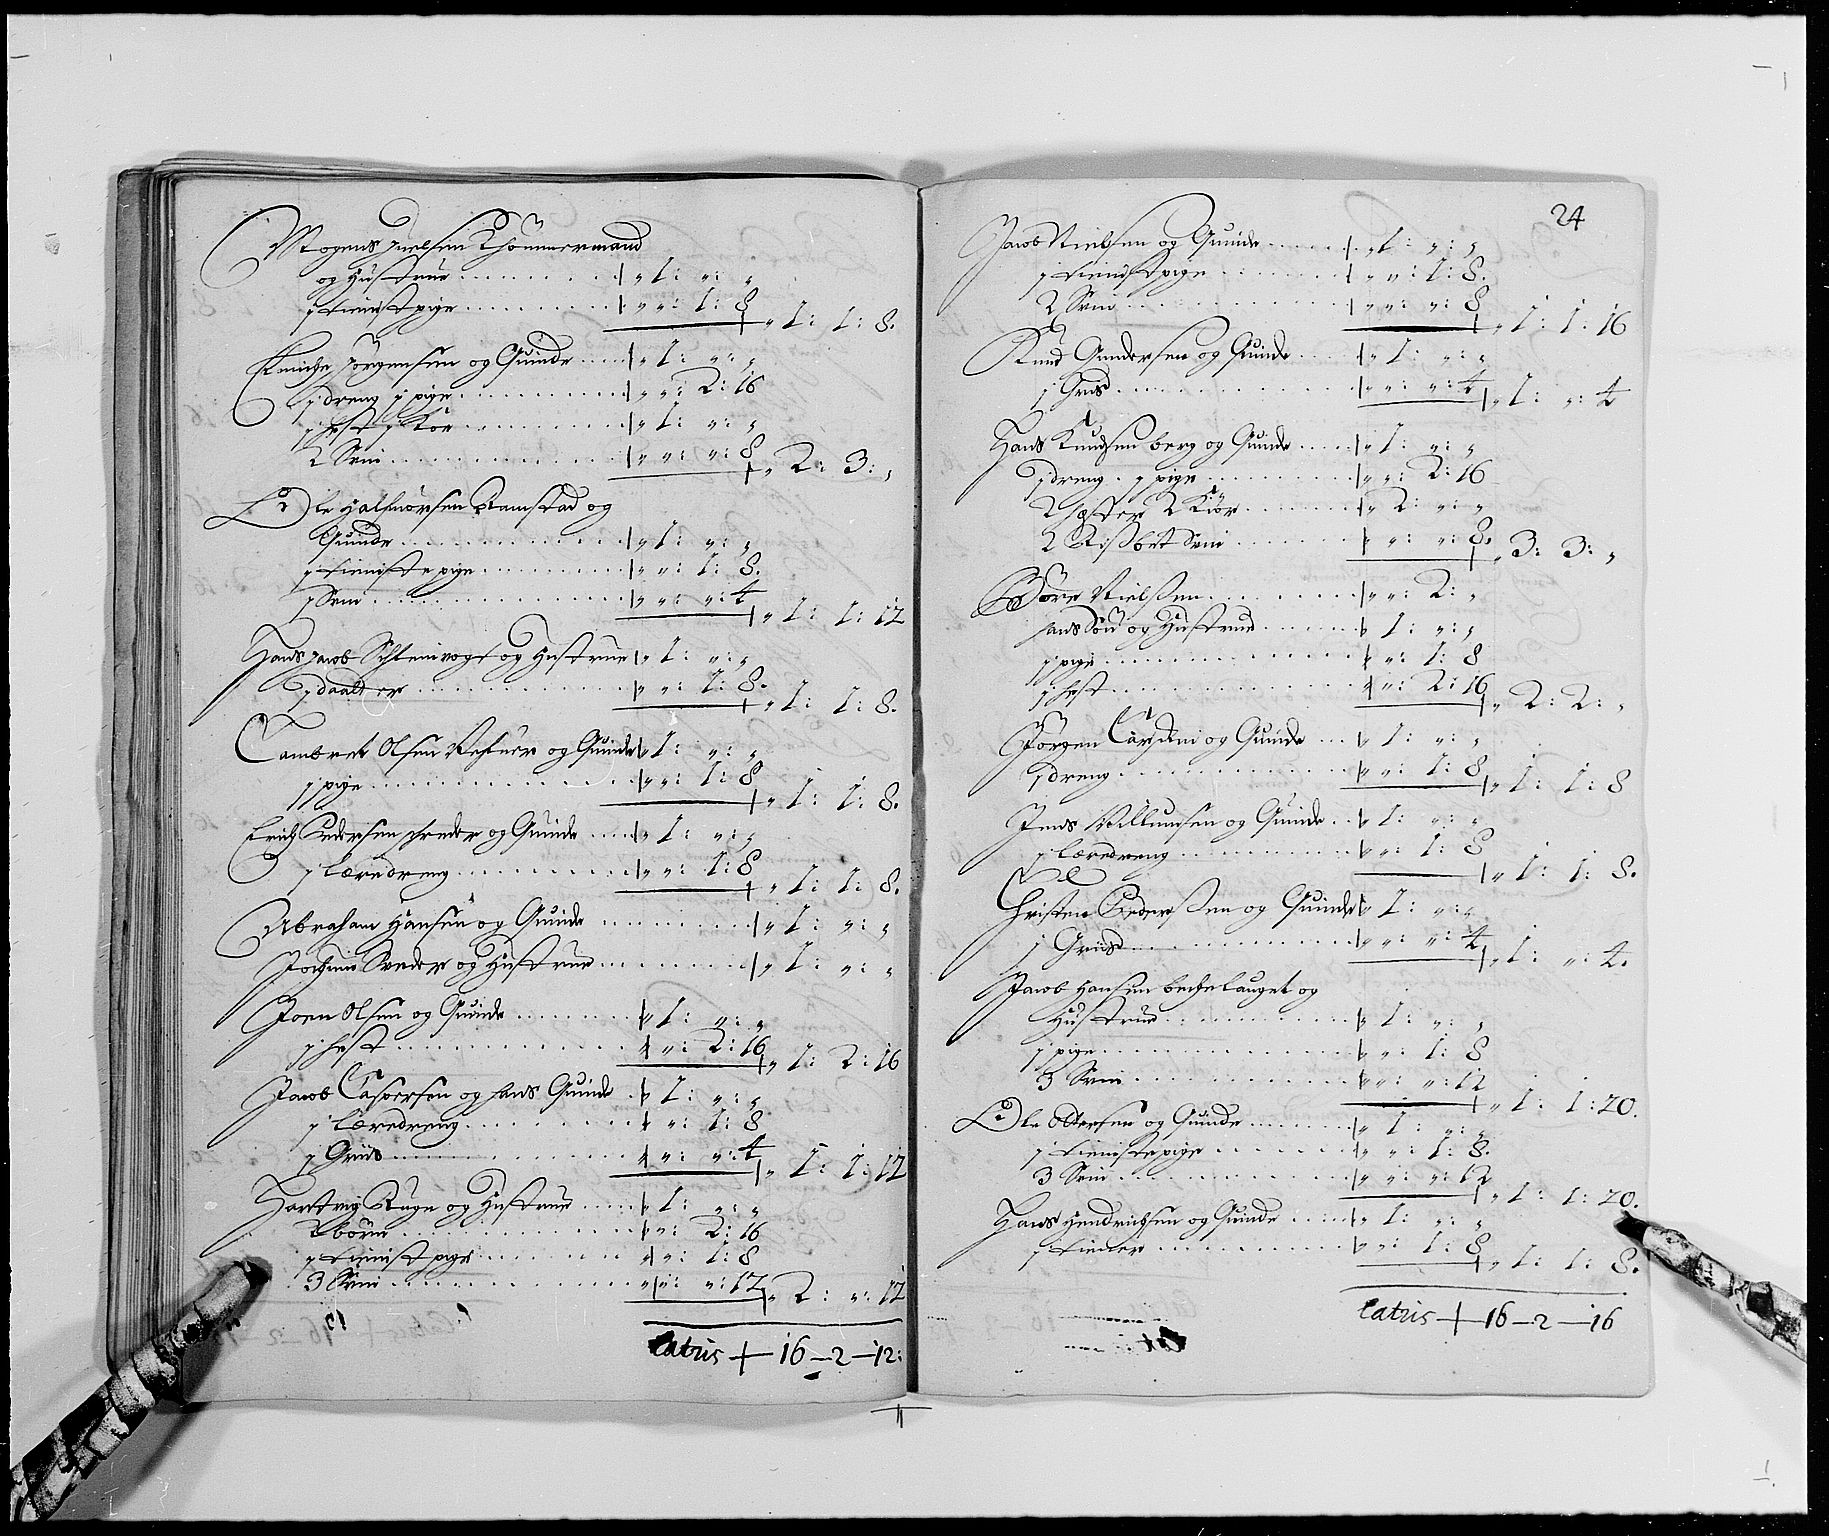 Mogens Juelsen Thömmermand
og Hustrue . . . . . . „ 1: „: „
1 tienistpige . . . . . . „ „: 1: 8 „ 1: 1: 8.
Jörgensen og Quinde . . . . „ 1: „: „
1 dreng 1 pige . . . . . . „ „: 2: 16
1 hest 1 Koe . . . . . . „ 1: „: „
2 Sviin . . . . . . „ „: „: 8 „ 2: 3: „
Ole Halfuorsen Ramstad og
Quinde . . . . . . „ 1: „: „
1 tienistepige . . . . . . „ „: 1: 8.
1 Sviin . . . . . . „ „: „: 4 „ 1: 1: 12
Hans Jacob Schlenivogt og Hustrue „ 1: „: „
1 daatter . . . . . . „ „: 1: 8. „ 1: 1: 8.
Lambret Olsen og Quinde „ 1: „: „
1 pige . . . . . . „ „: 1: 8 „ 1: 1: 8.
Erich Pedersen og Quinde . . . . „ 1: „: „
1 Læredreng . . . . . . „ „: 1: 8 „ 1: 1: 8.
Abraham Hansen og Quinde . . . . . . „ 1: „: „
Jochum og Hustrue . . . . . . „ 1: „: „
Joen Olsen og Quinde . . . . . . „ 1: „: „
1 hest . . . . . . „: 2: 16 „ 1: 2: 16
Jacob Caspersen og hans Quinde . „ 1: „: „
1 Læredreng . . . . . . „: 1: 8
1 Griis . . . . . . „: „: 4 „ 1: 1: 12
Hartvig Ruge og Hustrue . . . . „ 1: „: „
2 börn . . . . . . „: 2: 16
1 tienist pige . . . . . . „: 1: 8
3 Sviin . . . . . . „: „: 12 „ 2: „: 12
Latris + 16 – 2 – 12:
24
Jacob Nielsen og Quinde . . . . . . „ 1: „: „
1 tienistpige . . . . . . „ „: 1: 8.
2 Sviin . . . . . . „ „: „: 8 „ 1: 1: 16
Knud Gundersen og Quinde . . . . „ 1: „: „
1 Griis . . . . . . „ „: „: 4 „ 1: „: 4
Hans Knudsen berg og Quinde . . . . „ 1: „: „
1 dreng. 1 pige . . . . . . „ „: 2: 16
2 hester 2 Kiör . . . . . . „ 2: „: „
2 Sviin . . . . . . „: „: 8. „ 3: 3: „
Börre Nielssen . . . . . . „ „: 2: „
hans Sön og Hustrue . . . . . . 1: „: „
1 pige . . . . . . „: 1: 8
1 hest . . . . . . „: 2: 16 „ 2: 2: „
Jörgen og Quinde . . . „ 1: „: „
1 dreng . . . . . . „ „: 1: 8 „ 1: 1: 8
Jens Villumsen og Quinde . . „ 1: „: „
1 Læredreng . . . . . . „: 1: 8 „ 1: 1: 8.
Christen Pederssen og Quinde „ 1: „: „
1 Griis . . . . . . „ „: „: 4 „ 1: „: 4.
Jacob Hansen og
Hustrue . . . . . . „ 1: „: „
1 pige . . . . . . „ „: 1: 8
3 Sviin . . . . . . „ „: „: 12 „ 1: 1: 20.
Ole Ottersen og Quinde . . . . . . „ 1: „: „
1 tienistepige . . . . . . „ „: 1: 8.
3 Sviin . . . . . . „ „: „: 12 „ 1: 1: 20.
Hans Hendrichsen og Quinde . . . . „ 1: „: „
1 tiener . . . . . . „ „: 1: 8 „ 1: 1: 8.
Latris + 16 – 2 – 16